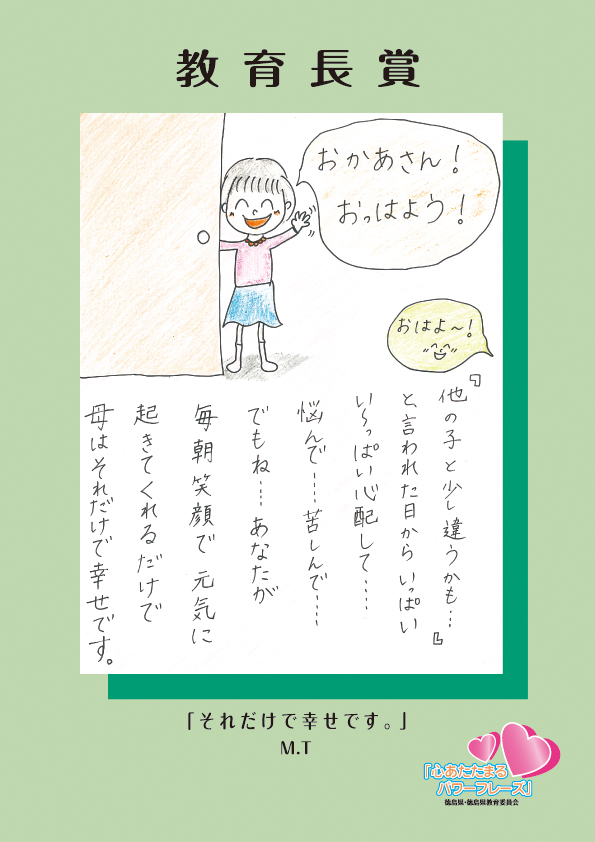 教育長賞
おかあさん!
おっはよう!
おはよ〜!
『他の子と少し違うかも…』
と、言われた日からいっぱい
い〜っぱい心配して……
悩んで……苦しんで……
でもね…あなたが
毎朝笑顔で元気に
起きてくれるだけで
母はそれだけで幸せです。
「それだけで幸せです。」
M.T
『心あたたまる
パワーフレーズ』
徳島県・徳島県教育委員会